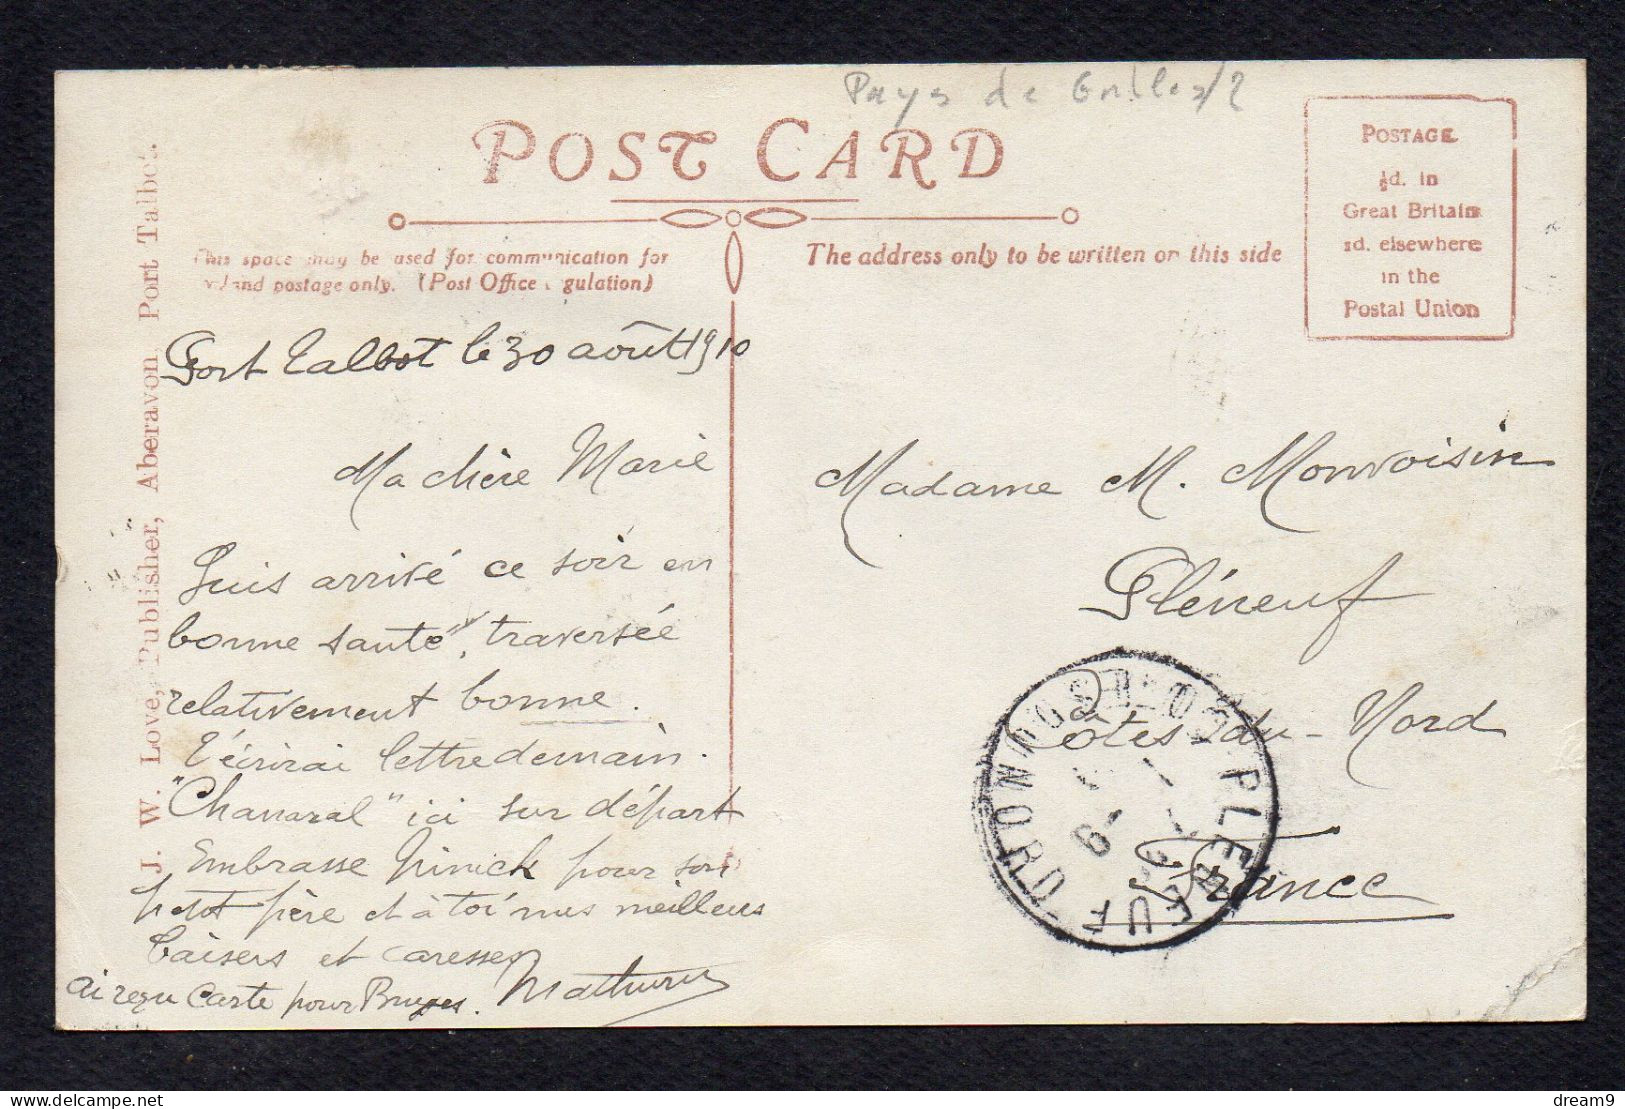 Pays de Galles/2
POST CARD
POSTAGE
½d. in
Great Britain
1d. elsewhere
in the
Postal Union
This space may be used for communication for
Inland postage only. (Post Office Regulation)
The address only to be written on this side
J. W. Love, Publisher, Aberavon, Port Talbot.
Port Talbot le 30 août 1910
Ma chère Marie
Suis arrivé ce soir en
bonne santé, traversée
relativement bonne.
T'écrirai lettre demain.
"Chanaral" ici sur départ
Embrasse Ninick pour son
petit père et à toi mes meilleurs
baisers et caresses
Mathurin
ai reçu carte pour Bruges.
Madame M. Monvoisin
Pléneuf
Côtes-du-Nord
France
PLENEUF
COTES DU NORD
delcampe.net
dream9